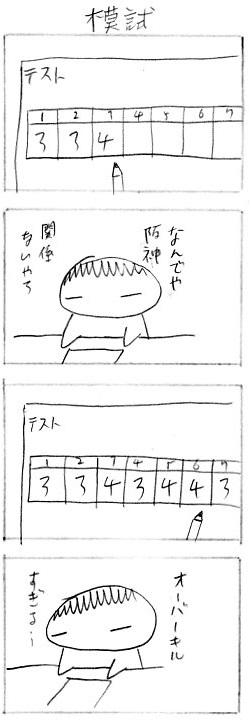 模試
テスト
1 2 3 4 5 6 7
3 3 4
なんでや
阪神
関係
ないやろ
テスト
1 2 3 4 5 6 7
3 3 4 3 4 4 3
オーバーキル
すぎる…